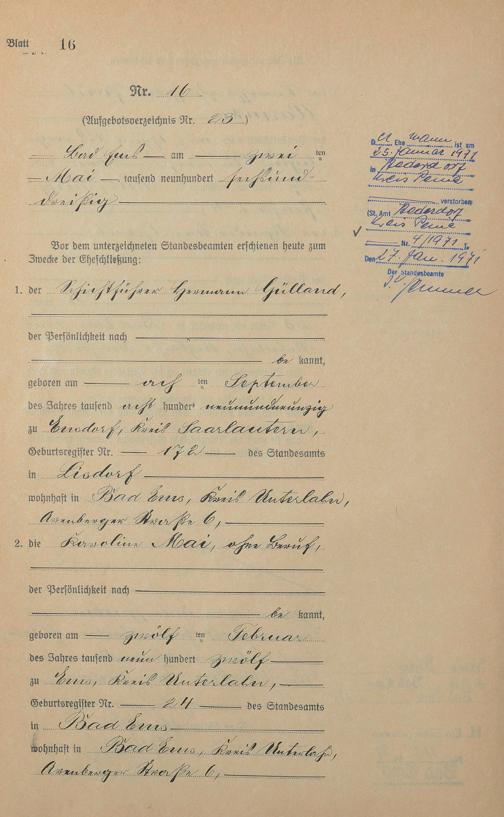 Blatt 16
Nr. 16
(Aufgebotsverzeichnis Nr. 23)
Bad Ems am zwei ten
Mai tausend neunhundert sechsund
dreißig
Vor dem unterzeichneten Standesbeamten erschienen heute zum
Zwecke der Eheschließung:
1. der Schichtführer Hermann Gülland,
der Persönlichkeit nach
be kannt,
geboren am ach ten September
des Jahres tausend acht hundert neunundneunzig
zu Ensdorf, Kreis Saarlautern,
Geburtsregister Nr. 172 des Standesamts
in Lisdorf
wohnhaft in Bad Ems, Kreis Unterlahn,
Arenberger Straße 6,
2. die Karoline Mai, ohne Beruf,
der Persönlichkeit nach
be kannt,
geboren am zwölf ten Februar
des Jahres tausend neun hundert zwölf
zu Ems, Kreis Unterlahn,
Geburtsregister Nr. 24 des Standesamts
in Bad Ems
wohnhaft in Bad Ems, Kreis Unterlahn,
Arenberger Straße 6,
D er Ehe mann ist am
25. Januar 1971
in
Kreis Peine
verstorben
(St. Amt
Kreis Peine
Nr. 4/1971).
Den 27. Jan. 1971
Der Standesbeamte